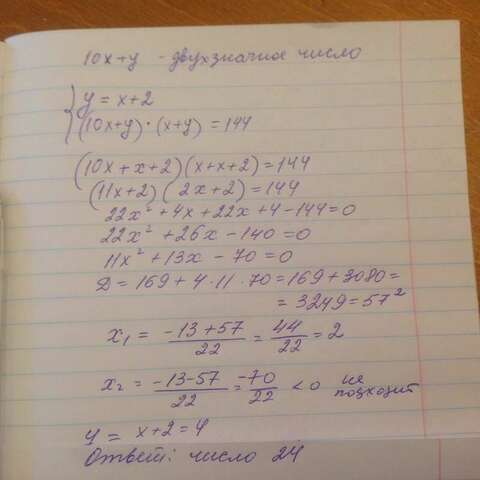 10x+y - двухзначное число
y = x+2
(10x+y)·(x+y) = 144
(10x+x+2)(x+x+2)=144
(11x+2)(2x+2)=144
22x²+4x+22x+4-144=0
22x²+26x-140=0
11x²+13x-70=0
D = 169+4·11·70=169+3080=
= 3249=57²
x₁ = (-13+57)/22 = 44/22 = 2
x₂ = (-13-57)/22 = -70/22 < 0 не подходит
y = x+2=4
Ответ: число 24